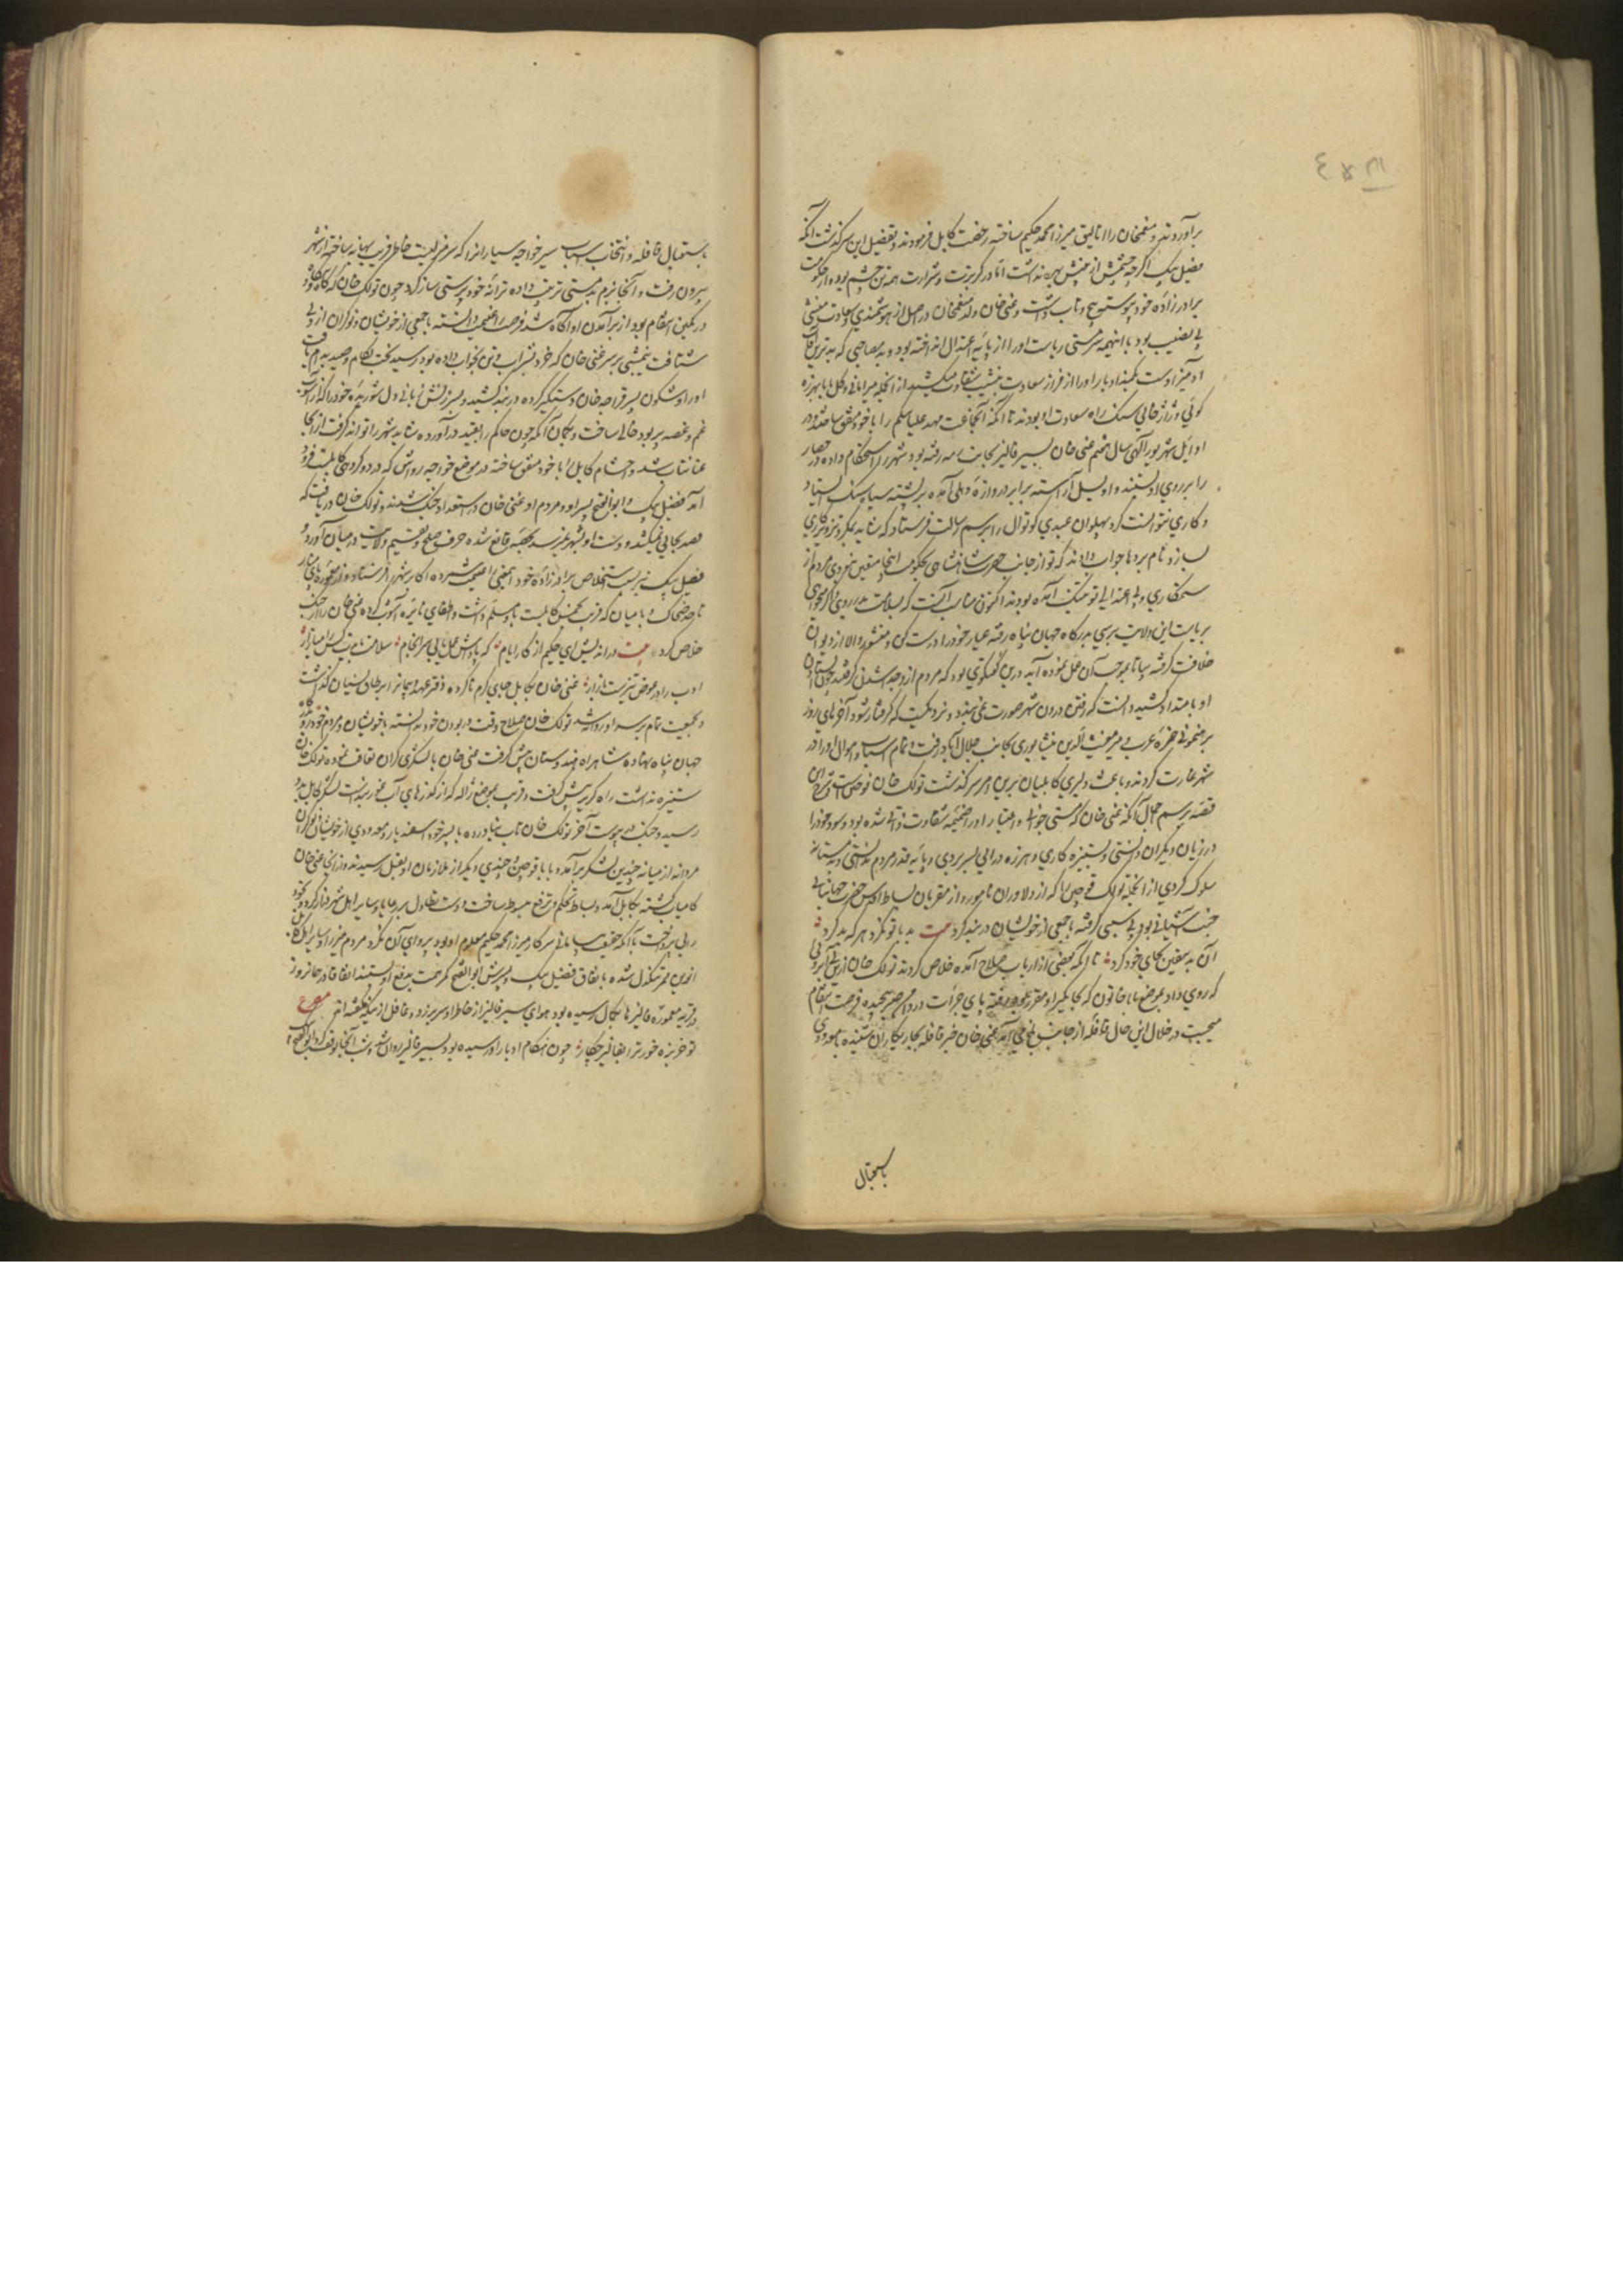 برآوردند و منعم‌خان را اتالیق میرزا محمد حکیم ساخته رخصت کابل فرمودند و تفصیل این سرگذشت آنکه
فضیل بیک اگرچه چشمش از بینش بهره نداشت اما در گربزت و شرارت همه تن چشم بوده از حکومت
برادرزاده خود پیوسته پیچ و تاب داشت و غنی خان ولد منعم‌خان در اصل از هوشمندی و سعادت منشی
بی نصیب بود با اینهمه مستی ریاست او را از پایه اعتدال انداخته بود و به مصاحبی که بدترین
آدمیزاد است او را از فراز سعادت به نشیب شقاوت میکشید از انجمله میرابانی و کل بابا بهرزه
گوئی و ژاژخائی سنگ راه سعادت او بودند تا آنکه آنجماعت مهد علیا بیگم را با خود متفق ساختند و در
اوایل شهریور الهی سال هشتم غنی خان بسیر فالیز بجانب زمه رفته بود شهر را استحکام داده در حصار
را بر روی او بستند و او یسل آراسته برابر دروازه دهلی آمده بر پشته سیاه سنگ ایستاد
و کاری نتوانست کرد پهلوان عیدی کوتوال را برسم رسالت فرستاد که شاید بمکر و تزویر کاری
بسازد نام بردها جواب دادند که تو از جانب حضرت شاهنشاهی بحکومت اینجا متعین نبودی مردم از
ستمکاری و بی اعتدالی تو بتنگ آمده بودند اکنون مناسب آنست که بسلامت بدر روی و اگر میخواهی
بریاست این ولایت برسی بدرگاه جهان پناه رفته عیار خود را درست کن و منشور والا از دیوان
خلافت گرفته بیا تا بموجب آن عمل نموده آید درین گفتگوی بود که مردم از وجدا شدن گرفتند چون ایستادن
او بامتداد کشید دانست که رفتن درون شهر صورت نمی بندد و نزدیکست که گرفتار شود آخر های روز
برهنمونی حمزه عرب و میر مغیث الدین نیشابوری بجانب جلال آباد رفت و تمام اسباب و اموال او را در
شهر غارت کردند و باعث دلیری کابلیان برین امر سرگذشت تولک خان قوچین است و شرح این
قصه برسم اجمال آنکه غنی خان که مستی جوانی و اعتبار او را ضمیمه شقاوت ذاتی شده بود و سود خود را
در زیان دیگران دانستی و بستیزه کاری و هرزه درائی بسر بردی و پایه قدر مردم ندانستی و بدمستانه
سلوک کردی از انجمله تولک قوچین را که از دلاوران نامور و از مقربان بساط اقدس حضرت جهانبانی
جنت آشیانی بود بی سببی گرفته با جمعی از خویشان در بند کرد بیت بد با تو نکرد هرکه بد کرد
آن بد بیقین بجای خود کرد تا آنکه بعضی از ارباب صلاح آمده خلاص کردند تولک خان ازین بی آبروئی
که روی داد بموضع ماما خاتون که بجایگیر او مقرر بود رفته پای جرأت در دامن صبر پیچیده فرصت انتقام
میجست در خلال این حال قافله از جانب بلخ می آمد غنی خان خبر قافله بجار بکاران شنیده با معدودی
باستقبال
باستقبال قافله و انتخاب اسباب سیر خواجه سیاران را که سرمنزلیست خاطر فریب بهانه ساخته از شهر
بیرون رفت و آنجا بزم بدمستی ترتیب داده ترانه خودپرستی ساز کرد چون تولک خان که گاه و بیگاه
در کمین انتقام بود از برآمدن او آگاه شد فرصت را غنیمت دانسته با جمعی از خویشان و نوکران از پی
شتافت نیم شبی بر سر غنی خان که خرد بشراب و تن بخواب داده بود رسید بخت بکام و صید بدام یافت
او را و شگون پسر قراجه خان دستگیر کرده در بند کشید و بسرزنش زبانی دل شوریده خود را که از آشوب
غم و غصه پر بود خالی ساخت و بگمان آنکه چون حاکم را بقید درآورده شاید شهر را تواند گرفت از آنجا
عنان تاب شد و حشام کابل را با خود متفق ساخته در موضع خواجه رواش که در دو کروهی کابلست فرود
آمد فضیل بیک و ابوالفتح پسر او و مردم او غنی خان در استعداد جنگ شدند و تولک خان دریافت که
قصد بجائی نمیکشد و دست او بشهر نمیرسد بحصه قانع شده حرف صلح و تقسیم ولایت در میان آورد و
فضیل بیک نیز بسبب استخلاص برادرزاده خود اینمعنی را غنیمت شمرده اکابر شهر را فرستاد و از
تا حد ضحاک و بامیان که قریب پنجم حصه کابلست باو مسلم داشت و اطفای نایره آشوب کرده غنی خان را از جنگ
خلاص کرد بیت در اندیش ای حکیم از کار ایام که پاداش عمل یابی سرانجام سلامت بایدت کس را میازار
ادب را در عوض تیزست بازار غنی خان بکابل جبای گرم ناکرده دفتر عهد و پیمان را بر طاق نسیان گذاشت
و بجمعیت تمام بر سر او روانه شد تولک خان صلاح وقت در بودن خود ندانسته با خویشان و مردم خود رو بدرگاه
جهان پناه نهاده شاهراه هندوستان پیش گرفت غنی خان با لشکری گران تعاقب نموده تولک خان
ستیزه نداشت راه گریز پیش گرفت و قریب بموضع ژاله که از گذرهای آب غوربندست لشکر کابل بدو
رسید و جنگ در پیوست آخر تولک خان تاب نیاورده با پسر خود اسفندیار و معدودی از خویشان و نوکران
مردانه از میانه چندین لشکر برآمد و بابا قوچین و چندی دیگر از ملازمان او بقتل رسیدند و از آنجا غنی خان
کامیاب گشته بکابل آمد و بساط تحکم و ترفع مبسوط ساخت و دست تطاول بر رعایا و سایر اهل شهر دراز کرد و بخود
رائی پرداخت با آنکه حقیقت سامانی سرکار میرزا محمد حکیم معلوم او بود پروای آن نکرد مردم میرزا و سایر اهل کابل
ازین ممر تنگدل شده باتفاق فضیل بیک و پسرش ابوالفتح کمر همت بدفع او بستند اتفاقا در همان روز
در قریه معموره فالیزها بکمال رسیده بود هوای سیر فالیز از خاطر او سر بر زد و غافل از نیکو گفته اند مصرع
تو خربزه خور ترا بفالیز چکار چون هنگام ادبار او رسیده بود بسیر فالیز روان شد و شب آنجا توقف کرد ابوالفتح